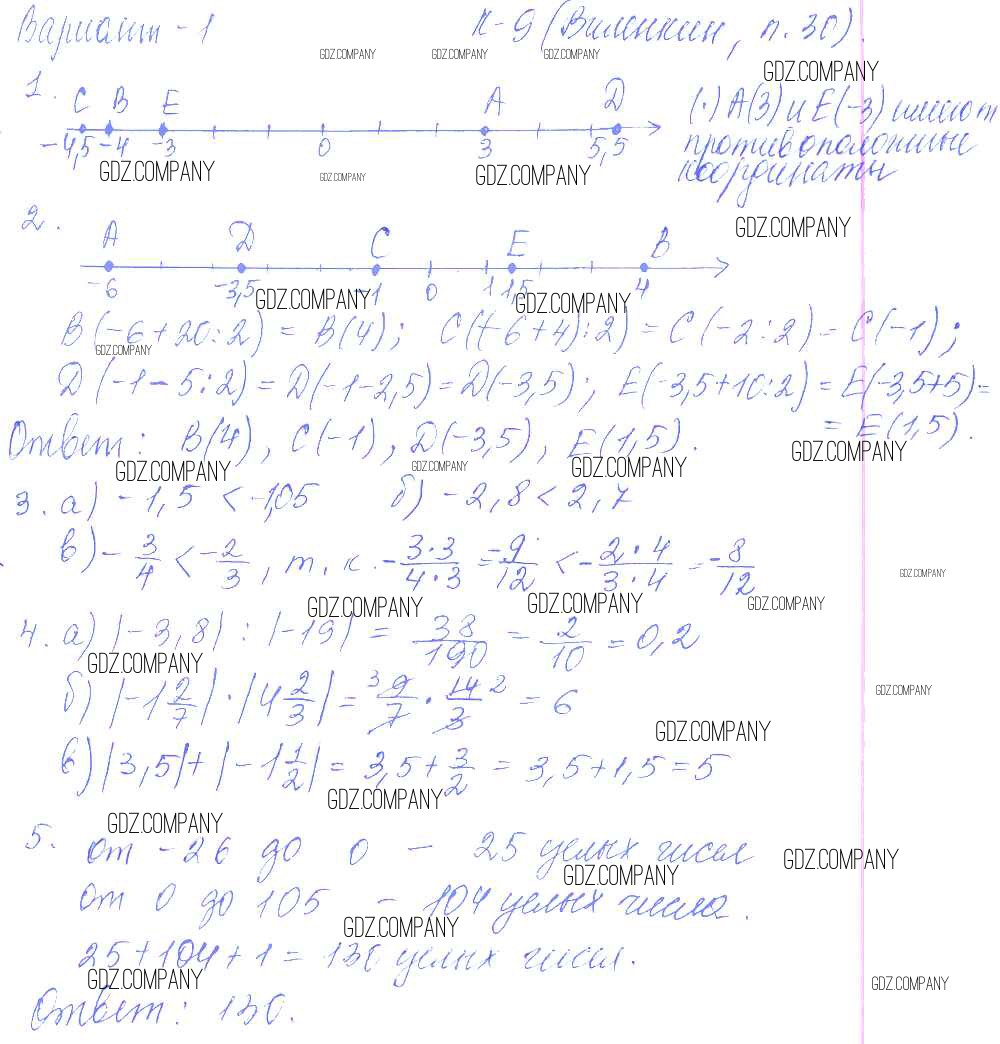 Вариант - 1 К-9 (Виленкин, п. 30).
GDZ.COMPANY GDZ.COMPANY GDZ.COMPANY
GDZ.COMPANY
1. C B E A D (·) A(3) и E(-3) имеют
-4,5 -4 -3 0 3 5,5 противоположные
GDZ.COMPANY GDZ.COMPANY GDZ.COMPANY координаты
2. GDZ.COMPANY
A D C E B
-6 -3,5 -1 0 1 1,5 4
GDZ.COMPANY GDZ.COMPANY
B(-6+20:2) = B(4); C((-6+4):2) = C(-2:2) = C(-1);
GDZ.COMPANY
D(-1-5:2) = D(-1-2,5) = D(-3,5); E(-3,5+10:2) = E(-3,5+5) =
= E(1,5).
Ответ: B(4), C(-1), D(-3,5), E(1,5).
GDZ.COMPANY GDZ.COMPANY GDZ.COMPANY GDZ.COMPANY
3. а) -1,5 < -1,05 б) -2,8 < 2,7
в) - 3/4 < -2/3, т. к. - 3·3/4·3 = -9/12 < - 2·4/3·4 = -8/12
GDZ.COMPANY
GDZ.COMPANY GDZ.COMPANY GDZ.COMPANY
4. а) |-3,8| : |-19| = 38/190 = 2/10 = 0,2
GDZ.COMPANY
б) |-1 2/7| · |4 2/3| = 3 9/7 · 14/3 2 = 6
GDZ.COMPANY
GDZ.COMPANY
в) |3,5| + |-1 1/2| = 3,5 + 3/2 = 3,5 + 1,5 = 5
GDZ.COMPANY
GDZ.COMPANY
5. от -26 до 0 - 25 целых чисел
GDZ.COMPANY GDZ.COMPANY
от 0 до 105 - 104 целых числа.
GDZ.COMPANY
25+104+1 = 130 целых чисел.
GDZ.COMPANY GDZ.COMPANY
Ответ: 130.